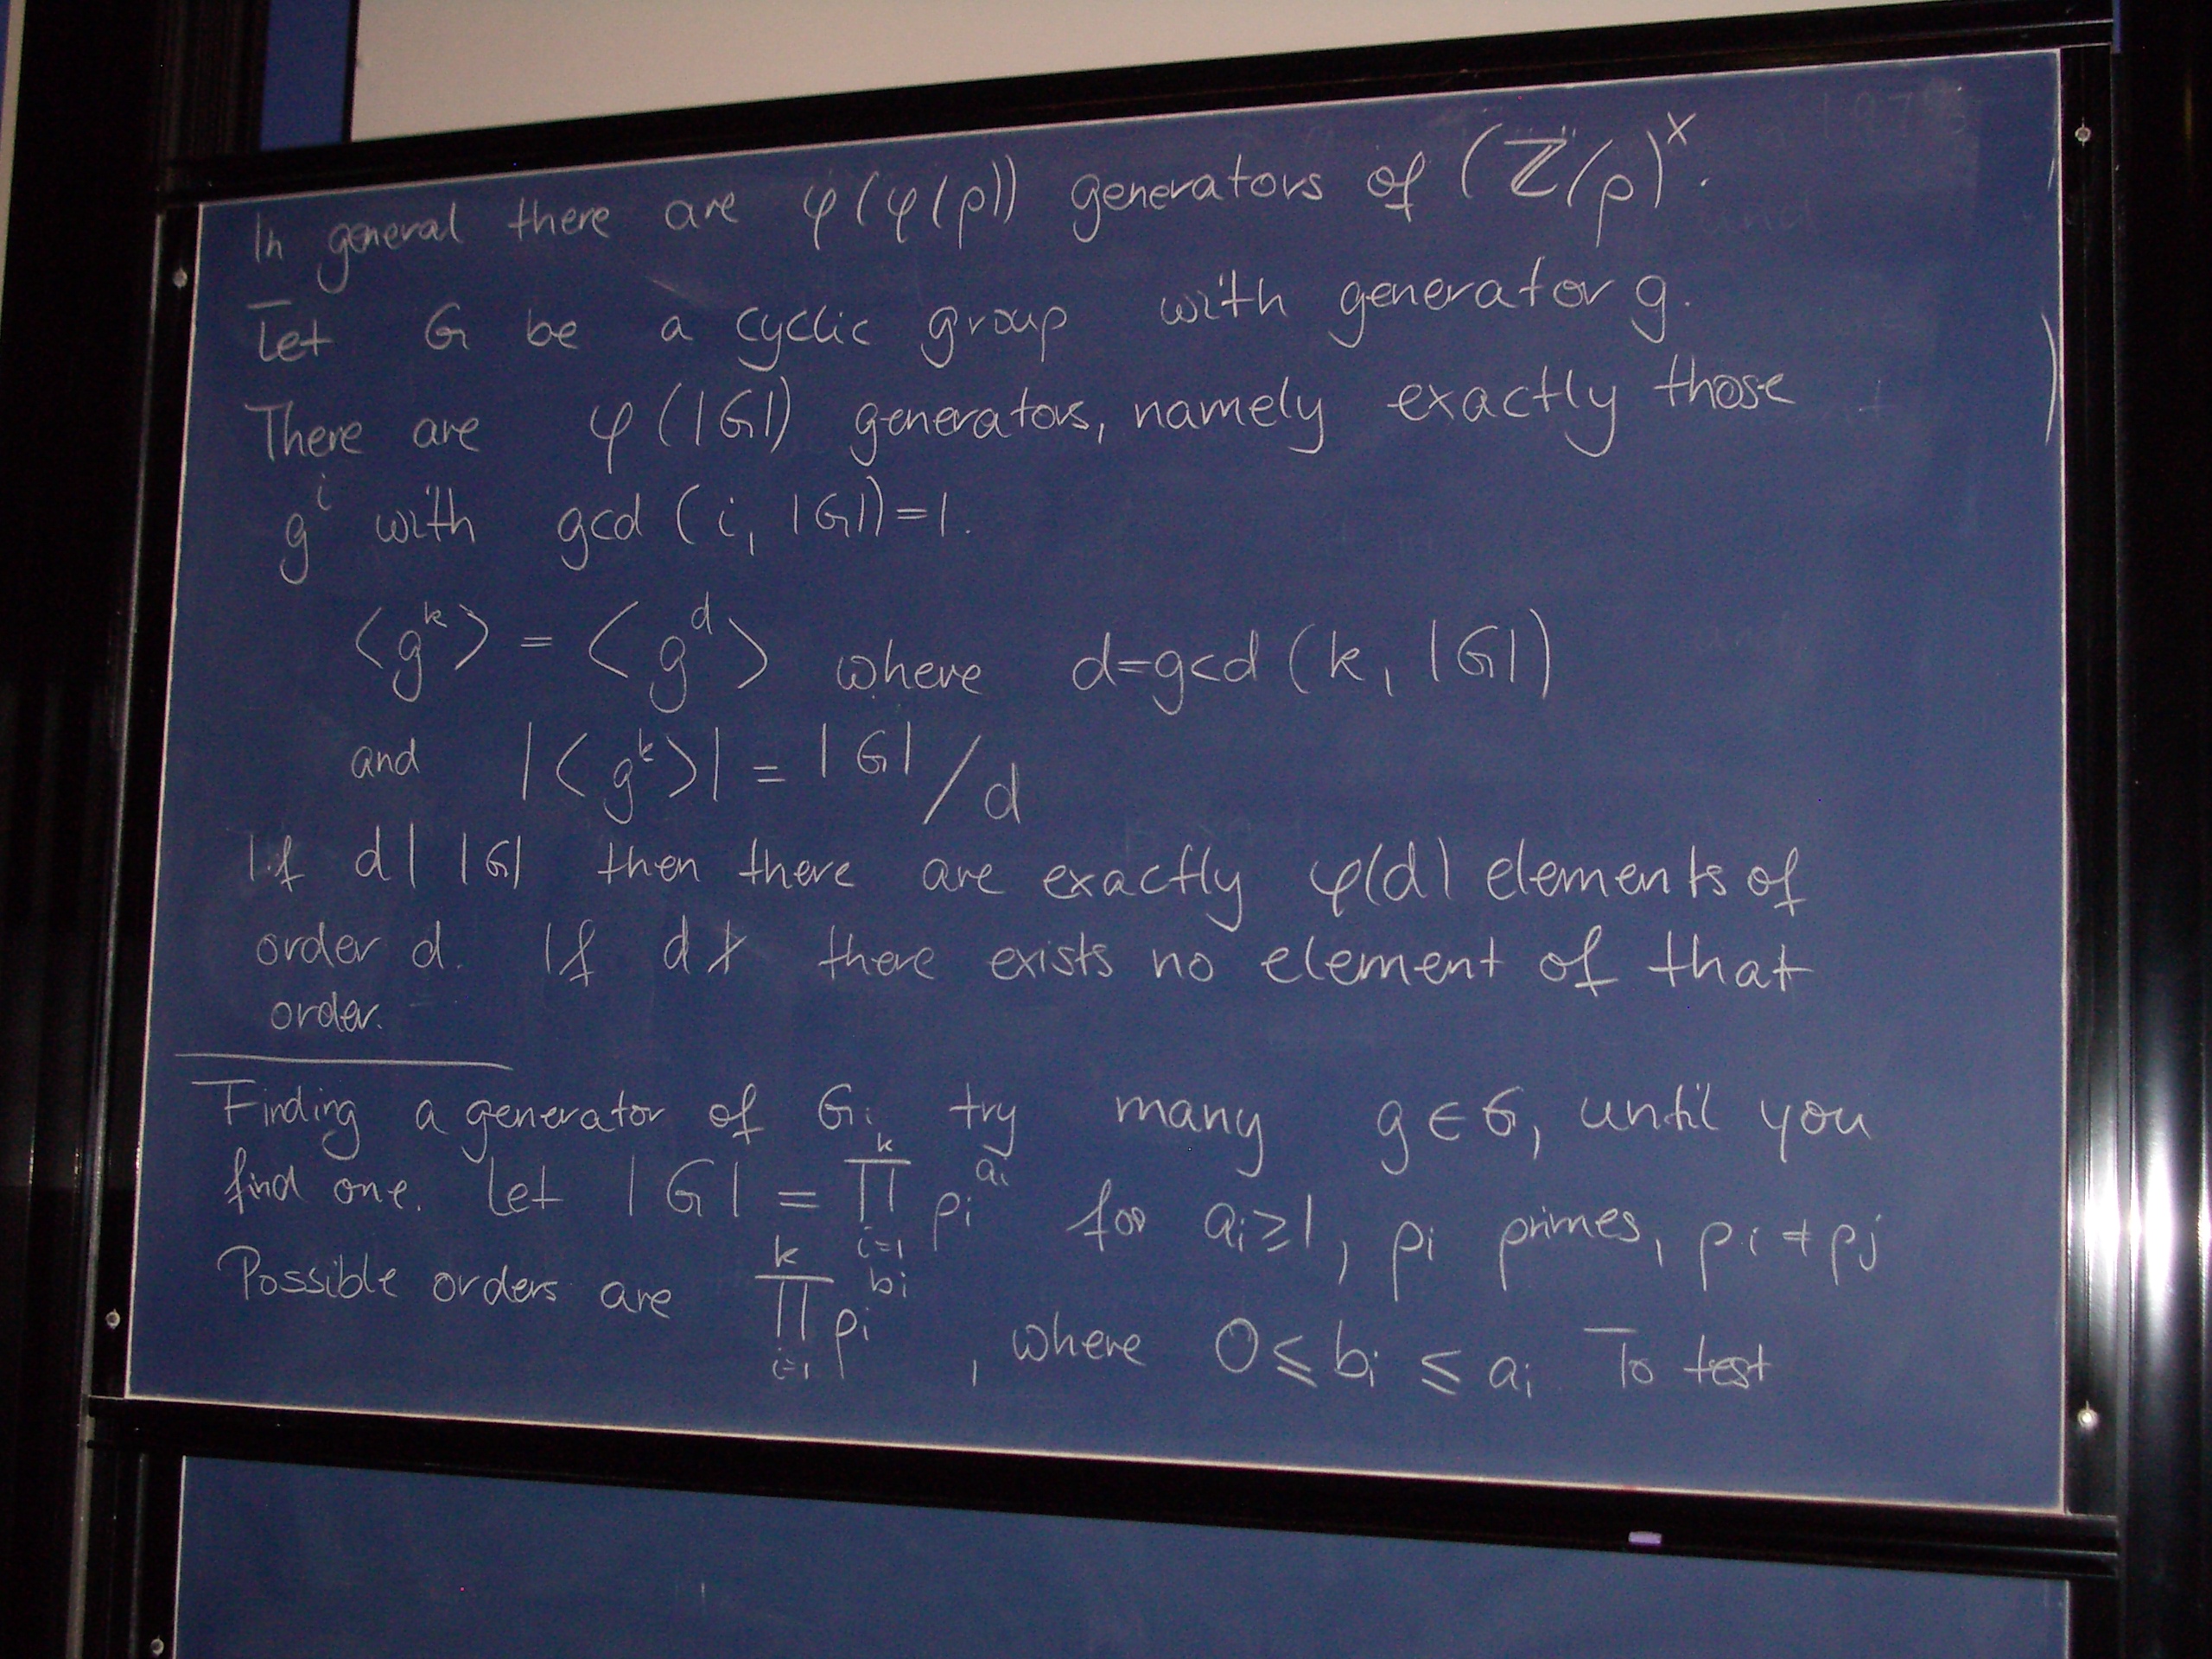 In general there are φ(φ(p)) generators of (Z/p)^×.
Let G be a cyclic group with generator g.
There are φ(|G|) generators, namely exactly those
g^i with gcd(i, |G|)=1.
<g^k> = <g^d> where d=gcd(k, |G|)
and |<g^k>| = |G|/d
If d| |G| then there are exactly φ(d) elements of
order d. If d∤ there exists no element of that
order.
Finding a generator of G: try many g∈G, until you
find one. Let |G| = ∏_{i=1}^{k} p_i^{a_i} for a_i≥1, p_i primes, p_i≠p_j
Possible orders are ∏_{i=1}^{k} p_i^{b_i}, where 0≤b_i≤a_i To test